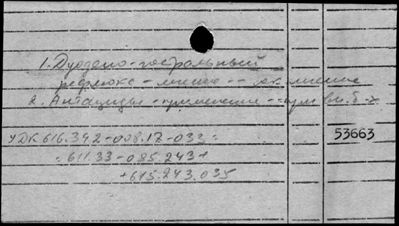 1. Дуодено-гастральный
рефлюкс - лечение --
2. Антациды - применение -- при
УДК 616.342-008.17-033:
:611.33-085.243+
+615.243.035
53663